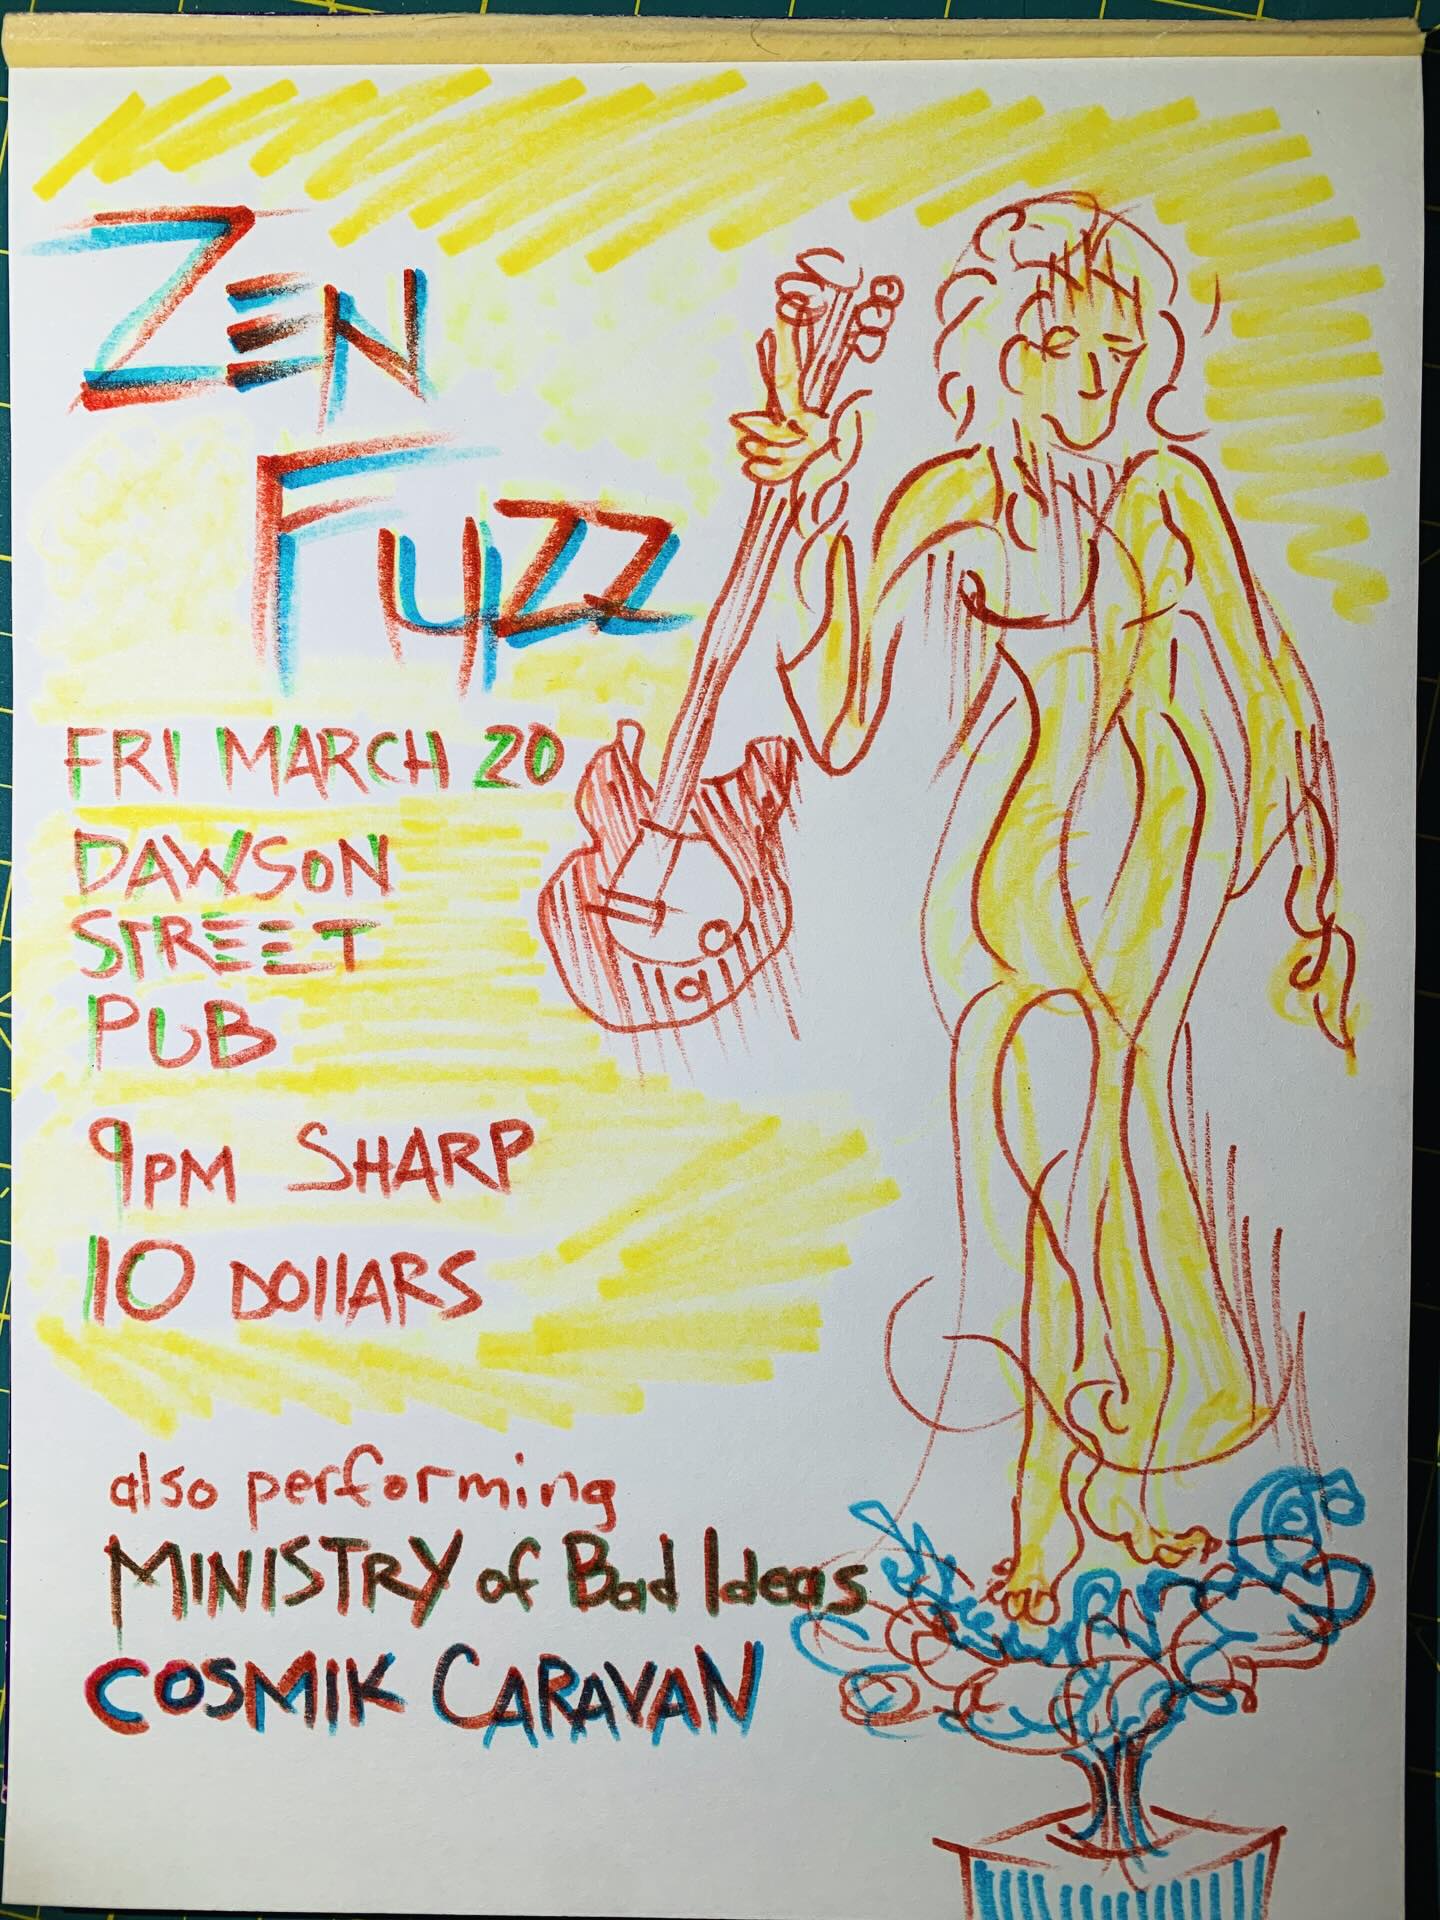 ZEN
FUZZ
FRI MARCH 20
DAWSON
STREET
PUB
9PM SHARP
10 DOllARS
also performing
MINISTRY of Bad Ideas
COSMIK CARAVAN